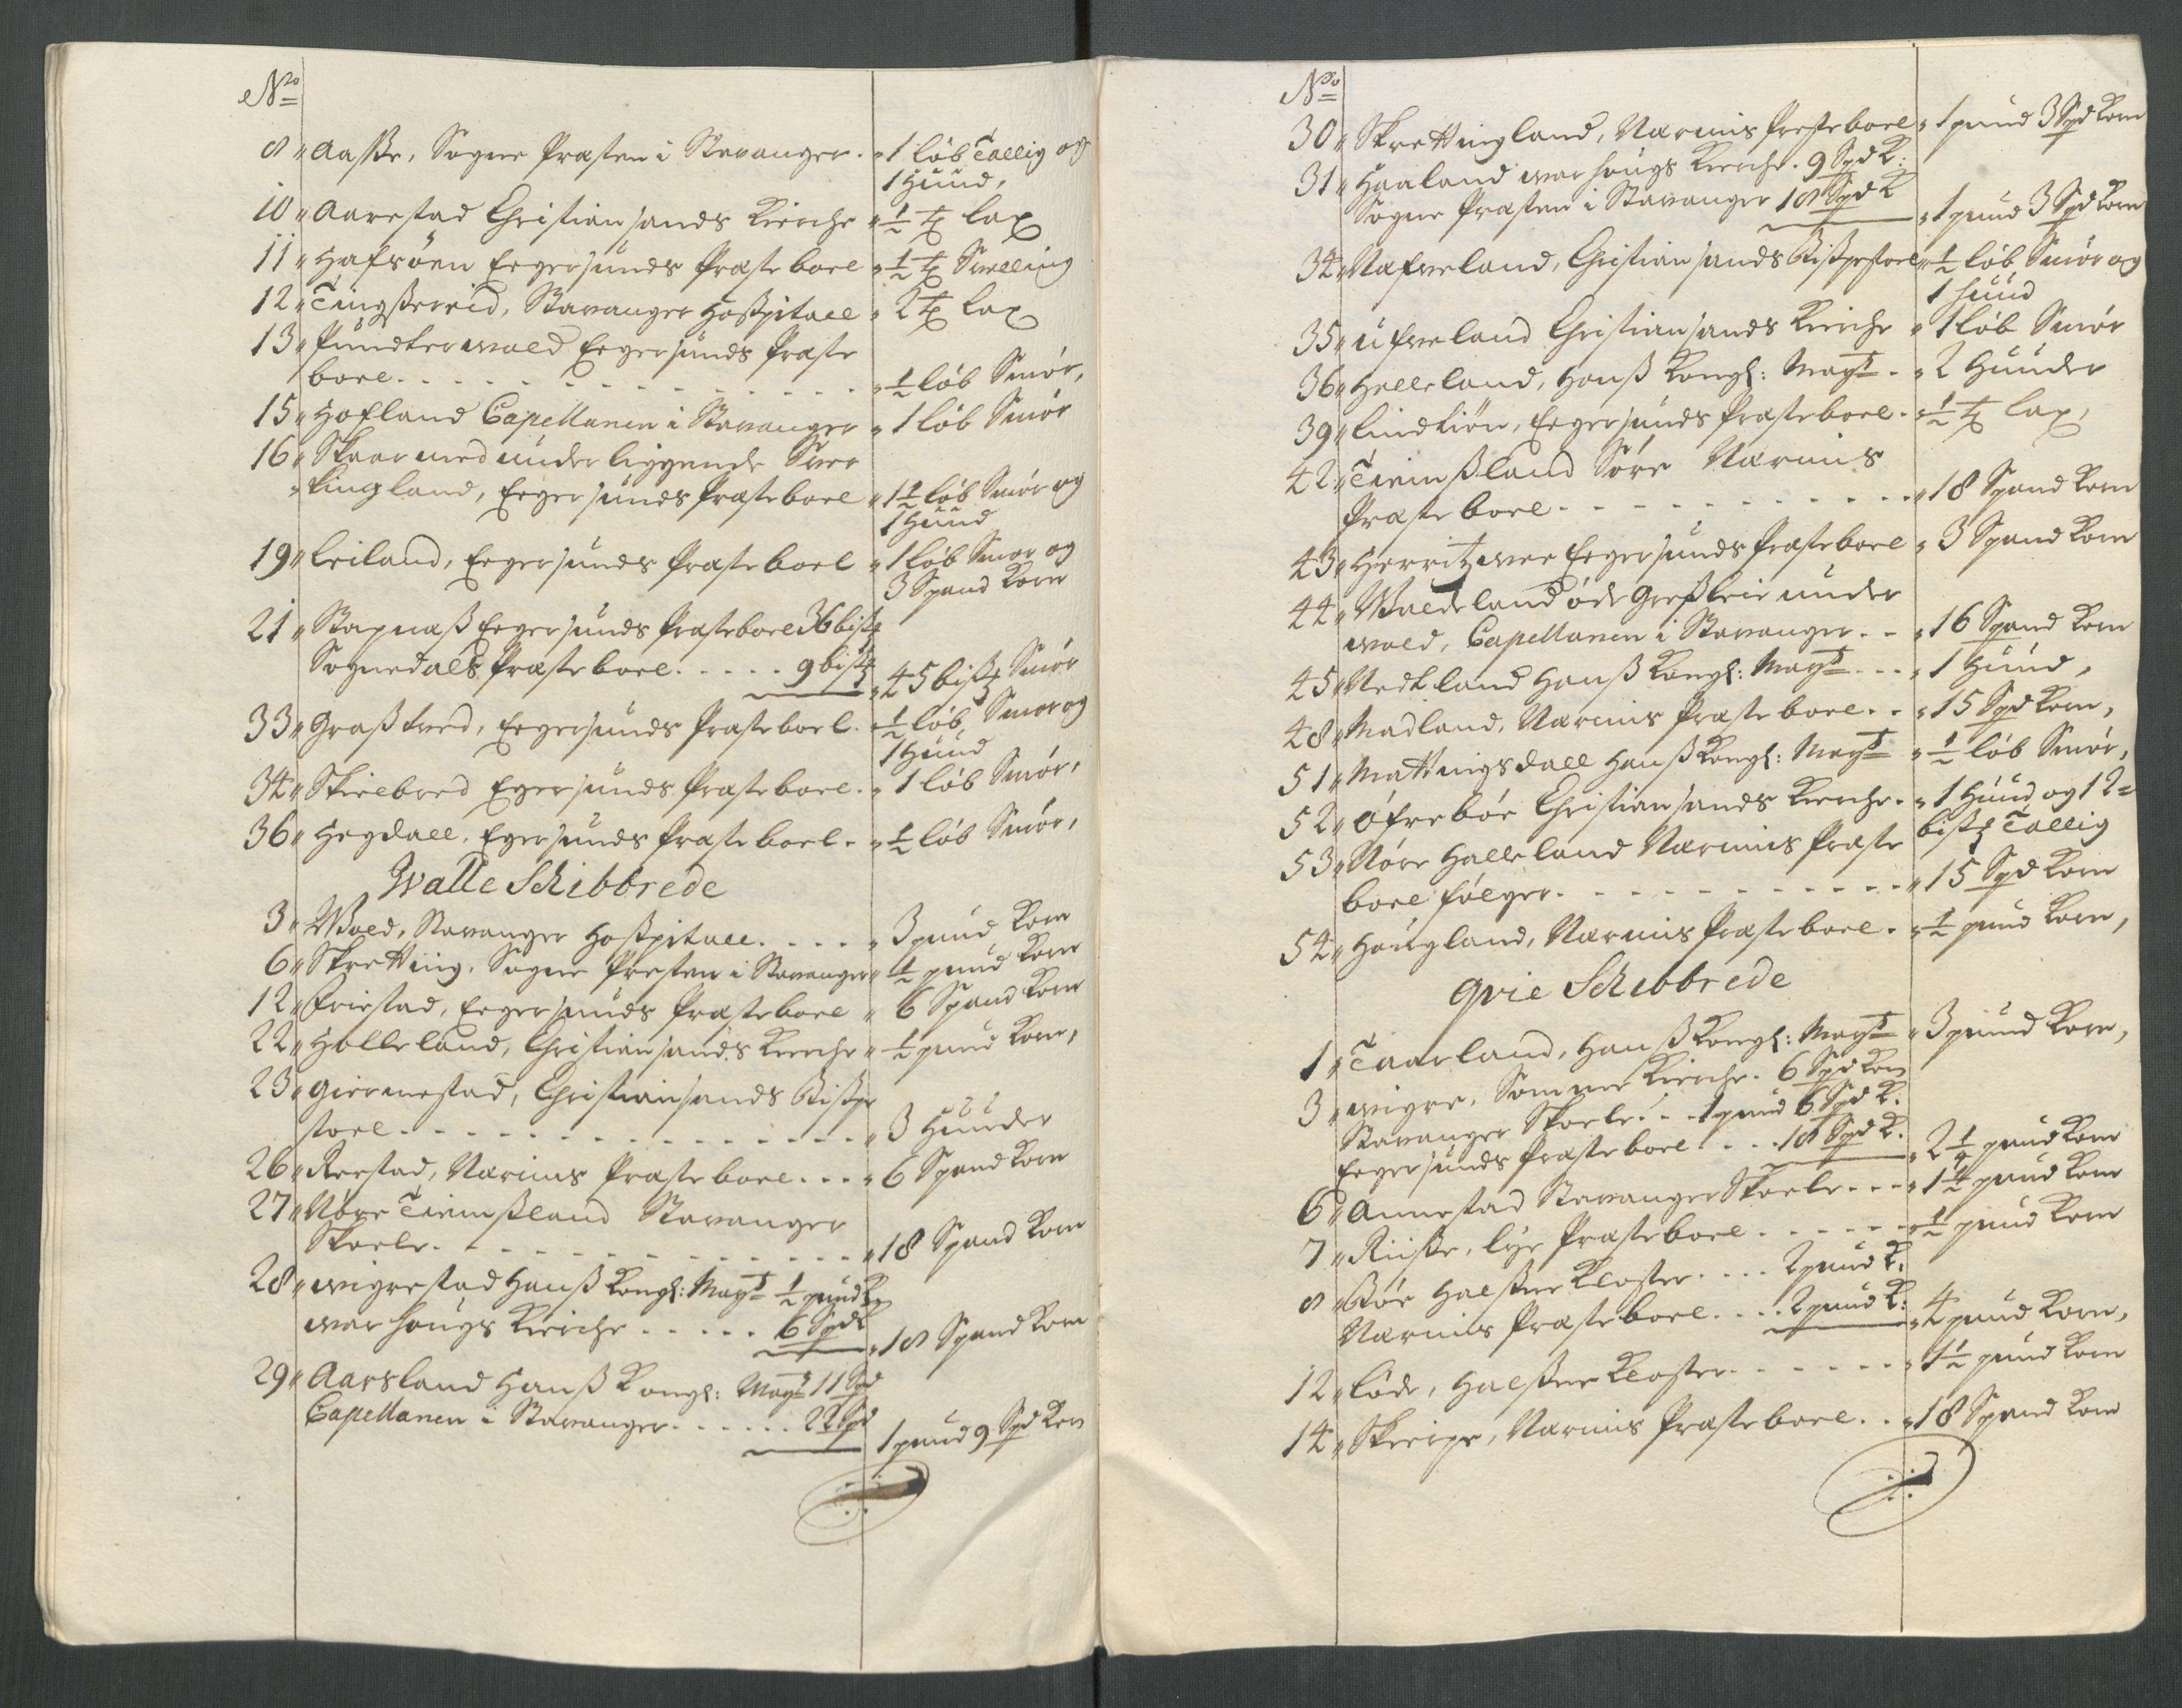 No
8 " Aaße, Sogne Præsten i Stavanger. " 1 løb Tallig og
1 Huud,
10 " Aarestad Christiansands Kierche " ½ tƷ lax
11 " Hafsöen Eegersunds Præsteboel " ½ tƷ Sælling
12 " Tingßereid, Stavanger Hoßpitael " 2 tƷ lax
13 " Pundtervold Eegersunds Præste
boel. . . . . " ½ løb Smør,
15 " Hofland Capellanen i Stavanger " 1 løb Smør
16 " Skaar med underliggende Svee
" kingland, Eegersunds Præsteboel " 1½ løb Smør og
1 Huud
19 " Leiland, Eegersunds Præsteboel " 1 løb Smør og
3 Spand Korn
21 " Stapnæß Eegersunds Præsteboel 36 bißƷ
Sognedals Præsteboel. . . . . 9 bißƷ " 45 bißƷ Smør
33 " Graßtved, Eegersunds Præsteboel. " ½ løb Smør og
1 Huud
34 " Skiebred Egersunds Præsteboel. " 1 løb Smør,
36 " Hegdall, Egersunds Præsteboel. " ½ løb Smør,
Walle Schibbrede
3 " Wold, Stavanger Hoßpitael. . . . " 3 pund Korn
6 " Skretting, Sogne Presten i Stavanger " ½ pund Korn
12 " Friestad, Eegersunds Præsteboel " 6 Spand Korn
22 " Holleland, Christiansands Kierche " ½ pund Korn,
23 " Giermestad, Christiansands Bißpe
stoel. . . . . " 3 Huuder
26 " Reestad, Nærims Præsteboel. . . " 6 Spand Korn
27 " Nøre Tiemßland Stavanger
Skoele. . . . . " 18 Spand Korn
28 " Wigrestad Hanß Kongl: Mayt ½ pund K
Warhougs Kierche. . . . . 6 Spd K " 18 Spand Korn
29 " Aarsland Hanß Kongl: Mayt 11 Spd
Capellanen i Stavanger. . . . . 22 Spd 1 pund 9 Spd Korn
No
30 " Skrettingland, Nærims Presteboel " 1 pund 3 Spd Korn
31 " Haaland Warhougs Kierche. 9 Spd K:
Sogne Præsten i Stavanger 18 Spd K " 1 pund 3 Spd Korn
34 " Nafveland, Christiansands Bißpestoel " ½ løb Smør og
1 huud
35 " Ufveland Christiansands Kierche " 1 løb Smør
36 " Helleland, Hanß Kongl: Mayt. " 2 Huuder
39 " Lindtiön, Eegersunds Præsteboel. " ½ tƷ lax,
42 " Tiemßland Søre Nærims
Præsteboel. . . . . " 18 Spand Korn
43 " Herritzwee Eegersunds Præsteboel " 3 Spand Korn
44 " Waldeland øde Græßleie under
Wold, Capellanen i Stavanger. . " 16 Spand Korn
45 " Nedtland Hanß Kongl: Mayt. . . " 1 Huud,
48 " Madland, Nærims Præsteboel. . " 15 Spd Korn,
51 " Mattingsdall Hanß Kongl: Mayt " ½ løb Smør,
52 " Øfrebøe Christiansands Kierche. " 1 Huud og 12
bißƷ Tallig
53 " Nøre Halleland Nærims Præste
boel følger. . . . . " 15 Spd Korn
54 " Hougland, Nærims Præsteboel. " ½ pund Korn,
Qvie Schibbrede
1 " Taarland, Hanß Kongl: Mayt " 3 pund Korn,
3 " Wigre, Somme Kierche. 6 Spd Korn
Stavanger Skoele. . . 1 pund 6 Spd K.
Eegersunds Præsteboel. . . 18 Spd K. " 2¼ pund Korn
6 " Annestad Stavanger Skoele. . . " 1½ pund Korn
7 " Riiße, Lye Præsteboel. . . . . " ½ pund Korn
8 " Bøe Halßnee Kloster. . . . 2 pund K.
Nærims Præsteboel. . . . 2 pund K. " 4 pund Korn,
12 " Løde, Halßnee Kloster. . . . . " 1½ pund Korn
14 " Skreipe, Nærims Præsteboel. . " 18 Spand Korn